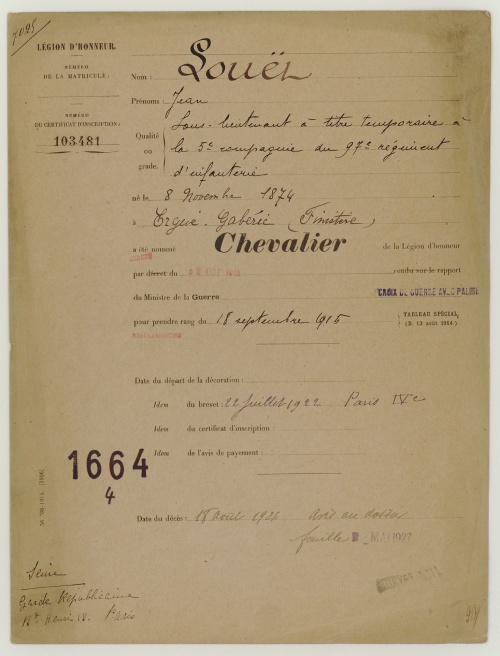 7025
LÉGION D'HONNEUR.
NUMÉRO
DE LA MATRICULE :
NUMÉRO
DU CERTIFICAT D'INSCRIPTION :
103481
Nom : Louël
Prénoms : Jean
Qualité ou grade. Sous-lieutenant à titre temporaire à
la 5e compagnie du 97e régiment
d'infanterie
né le 8 Novembre 1874
à Ergué-Gabéric (Finistère)
a été nommé Chevalier de la Légion d'honneur
par décret du rendu sur le rapport
du Ministre de la Guerre CROIX DE GUERRE AVEC PALME
pour prendre rang du 18 septembre 1915 TABLEAU SPÉCIAL,
(D. 13 août 1914.)
Date du départ de la décoration :
Idem du brevet : 22 Juillet 1922 Paris IXe
Idem du certificat d'inscription :
Idem de l'avis de payement :
1664
4
Date du décès : 18 août 1926 avis au dossier
feuille MAI 1927
Seine
Garde Républicaine
Bd Henri IV. Paris